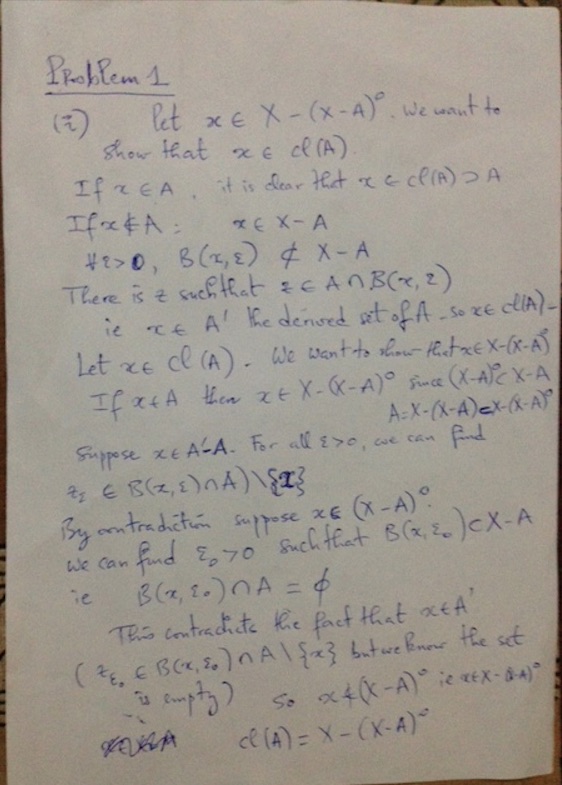 Problem 1
(i) Let x ∈ X − (X−A)°. We want to
show that x ∈ cl(A).
If x ∈ A, it is clear that x ∈ cl(A) ⊃ A
If x ∉ A : x ∈ X − A
∀ε>0, B(x,ε) ⊄ X − A
There is z such that z ∈ A ∩ B(x,ε)
ie x ∈ A' the derived set of A. so x ∈ cl(A) −
Let x ∈ cl(A). We want to show that x ∈ X−(X−A)°
If x ∈ A then x ∈ X−(X−A)° since (X−A)° ⊂ X−A
A = X−(X−A) ⊂ X−(X−A)°
Suppose x ∈ A'−A. For all ε>0, we can find
z_ε ∈ B(x,ε) ∩ A) \ {x}
By contradiction suppose x ∈ (X−A)°.
we can find ε₀>0 such that B(x,ε₀) ⊂ X−A
ie B(x,ε₀) ∩ A = ϕ
This contradicts the fact that x ∈ A'
(z_ε₀ ∈ B(x,ε₀) ∩ A \ {x} but we know the set
is empty) so x ∉ (X−A)° ie x ∈ X−(X−A)°
cl(A) = X − (X−A)°